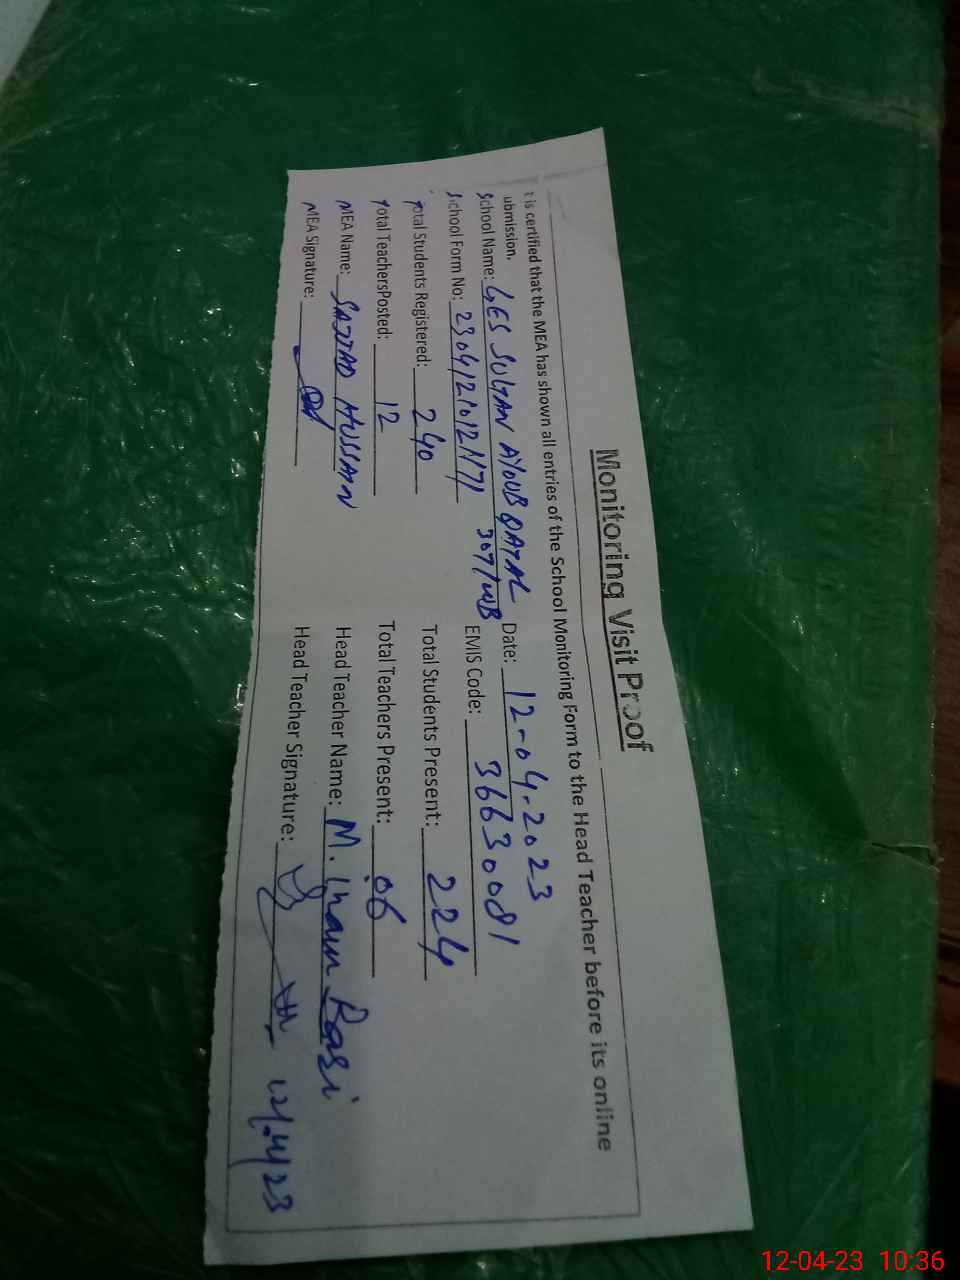 Monitoring Visit Proof
t is certified that the MEA has shown all entries of the School Monitoring Form to the Head Teacher before its online
ubmission.
School Name: GES SULTAN AYOUB QATAL 307/WB Date: 12-04-2023
School Form No: 2304121012 EMIS Code: 36630081
Total Students Registered: 240 Total Students Present: 224
Total TeachersPosted: 12 Total Teachers Present: 06
MEA Name: SAJJAD HUSSAIN Head Teacher Name: M. Inam
MEA Signature: Head Teacher Signature: 12/4/23
12-04-23 10:36